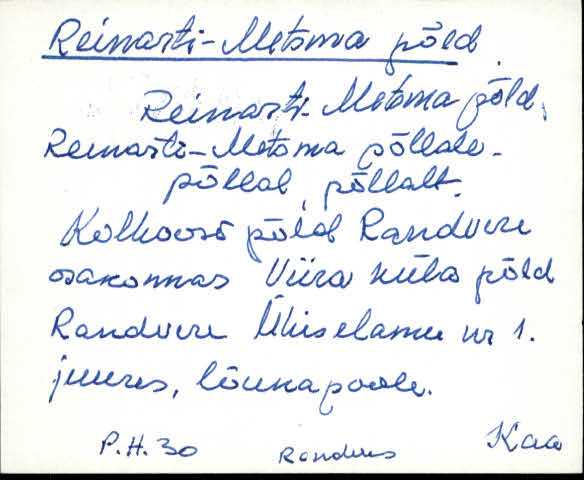 Reinarti-Metsma põld
Reinarti-Metsma põld,
Reinarti-Metsma põllale-
põllal, põllalt.
Kolhoosi põld Randvere
osakonnas Viira küla põld
Randvere Ühiselamu nr 1.
juures, lõunapoole.
P.H. 30 Randvere Kaa